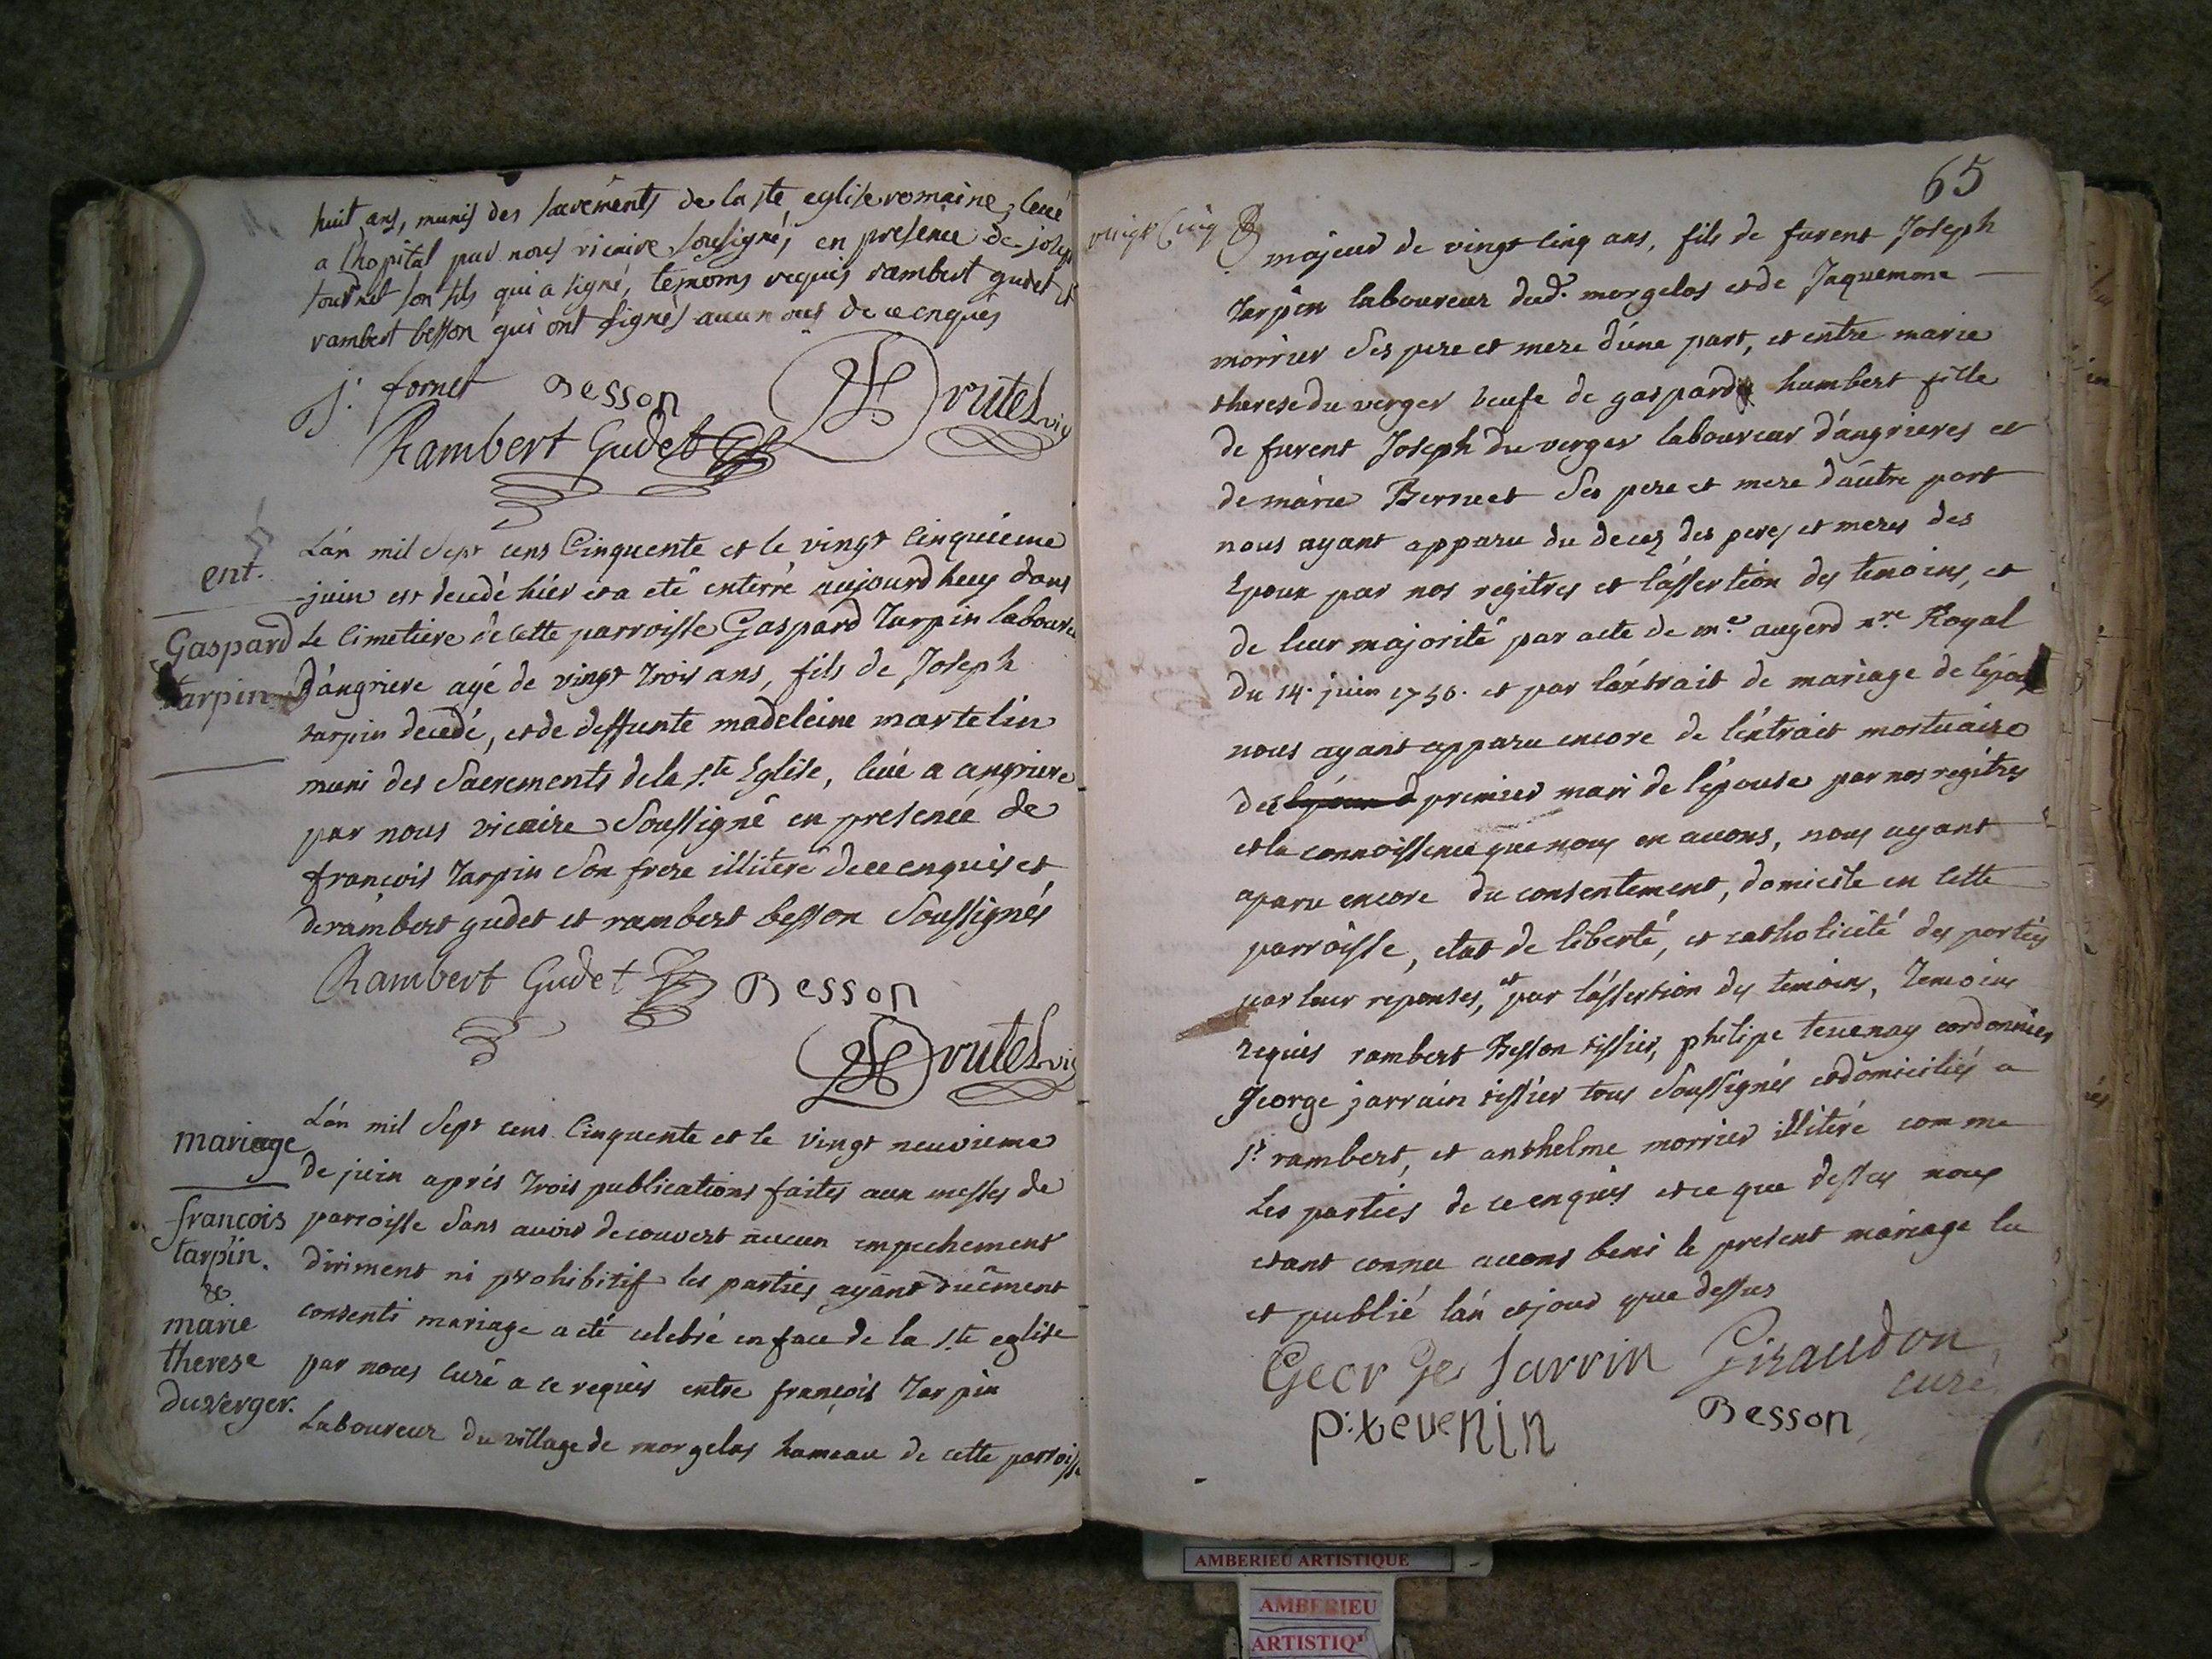 huit ans, munis des sacréments de la ste eglise romaine, levé
a l'hopital par nous vicaire sousigné, en presence de joseph
tournet son fils qui a signé, temoins requis rambert gudet et
rambert besson qui ont signés de ce enquis
j. fornet Besson
Rambert Gudet
ent.
Gaspard
tarpin
L'an mil Sept cens Cinquente et le vingt Cinquieme
juin est decedé hiér et a eté enterré aujourdhuy dans
Le Cimetiere de Cette parroisse Gaspard Tarpin laboure
d'angriere agé de vingt trois ans, fils de Joseph
tarpin decedé, et de deffunte madeleine martelin
muni des Sacrements de la Ste Eglise, levé a angriere
par nous vicaire Soussigné en presence de
françois Tarpin Son frere illiteré de ce enquis et
de rambert gudet et rambert besson Soussignés
Rambert Gudet Besson
mariage
francois
tarpin.
&
marie
therese
duverger.
L'an mil Sept cens Cinquente et le vingt neuvieme
de juin aprés trois publications faites aux messes de
parroisse Sans avoir decouvert aucun empechement
diriment ni prohibitif les parties ayant duëment
consenti mariage a eté celebré en face de la Ste eglise
par nous curé a ce requis entre françois Tarpin
Laboureur du village de morgelas hameau de cette parroisse
65
vingt Cinq
majeur de vingt cinq ans, fils de furent Joseph
Tarpin laboureur dud. morgelas et de Jaquemme
morrier Ses pere et mere d'une part, et entre marie
therese du verger veufe de gaspard humbert fille
de furent Joseph du verger laboureur d'angrieres et
de marie Bernuet Ses pere et mere d'autre part
nous ayant apparu du decez des peres et meres des
Epoux par nos regitres et l'assertion des temoins, et
de leur majorité par acte de me augerd nre Royal
du 14. juin 1750. et par l'extrait de mariage de
nous ayant apparu encore de l'extrait mortuaire
de premier mari de l'épouse par nos regitres
et la connoissence que nous en avons, nous ayant
aparu encore du consentement, domicile en cette
parroisse, etat de liberté, et catholicité des parties
par leur reponses, et par l'assertion des temoins, Temoins
requis rambert Besson tissier, philipe tevenay cordonnier
George jarrain tissier tous Soussignés et domiciliés a
St rambert, et anthelme morrier illiteré comme
Les parties de ce enquis et ce que dessus nous
etant connu avons beni le present mariage lu
et publié l'an et jour que dessus
George Jarrin Giraudon
curé
p. tevenin Besson
AMBERIEU ARTISTIQUE
AMBERIEU
ARTISTIQ